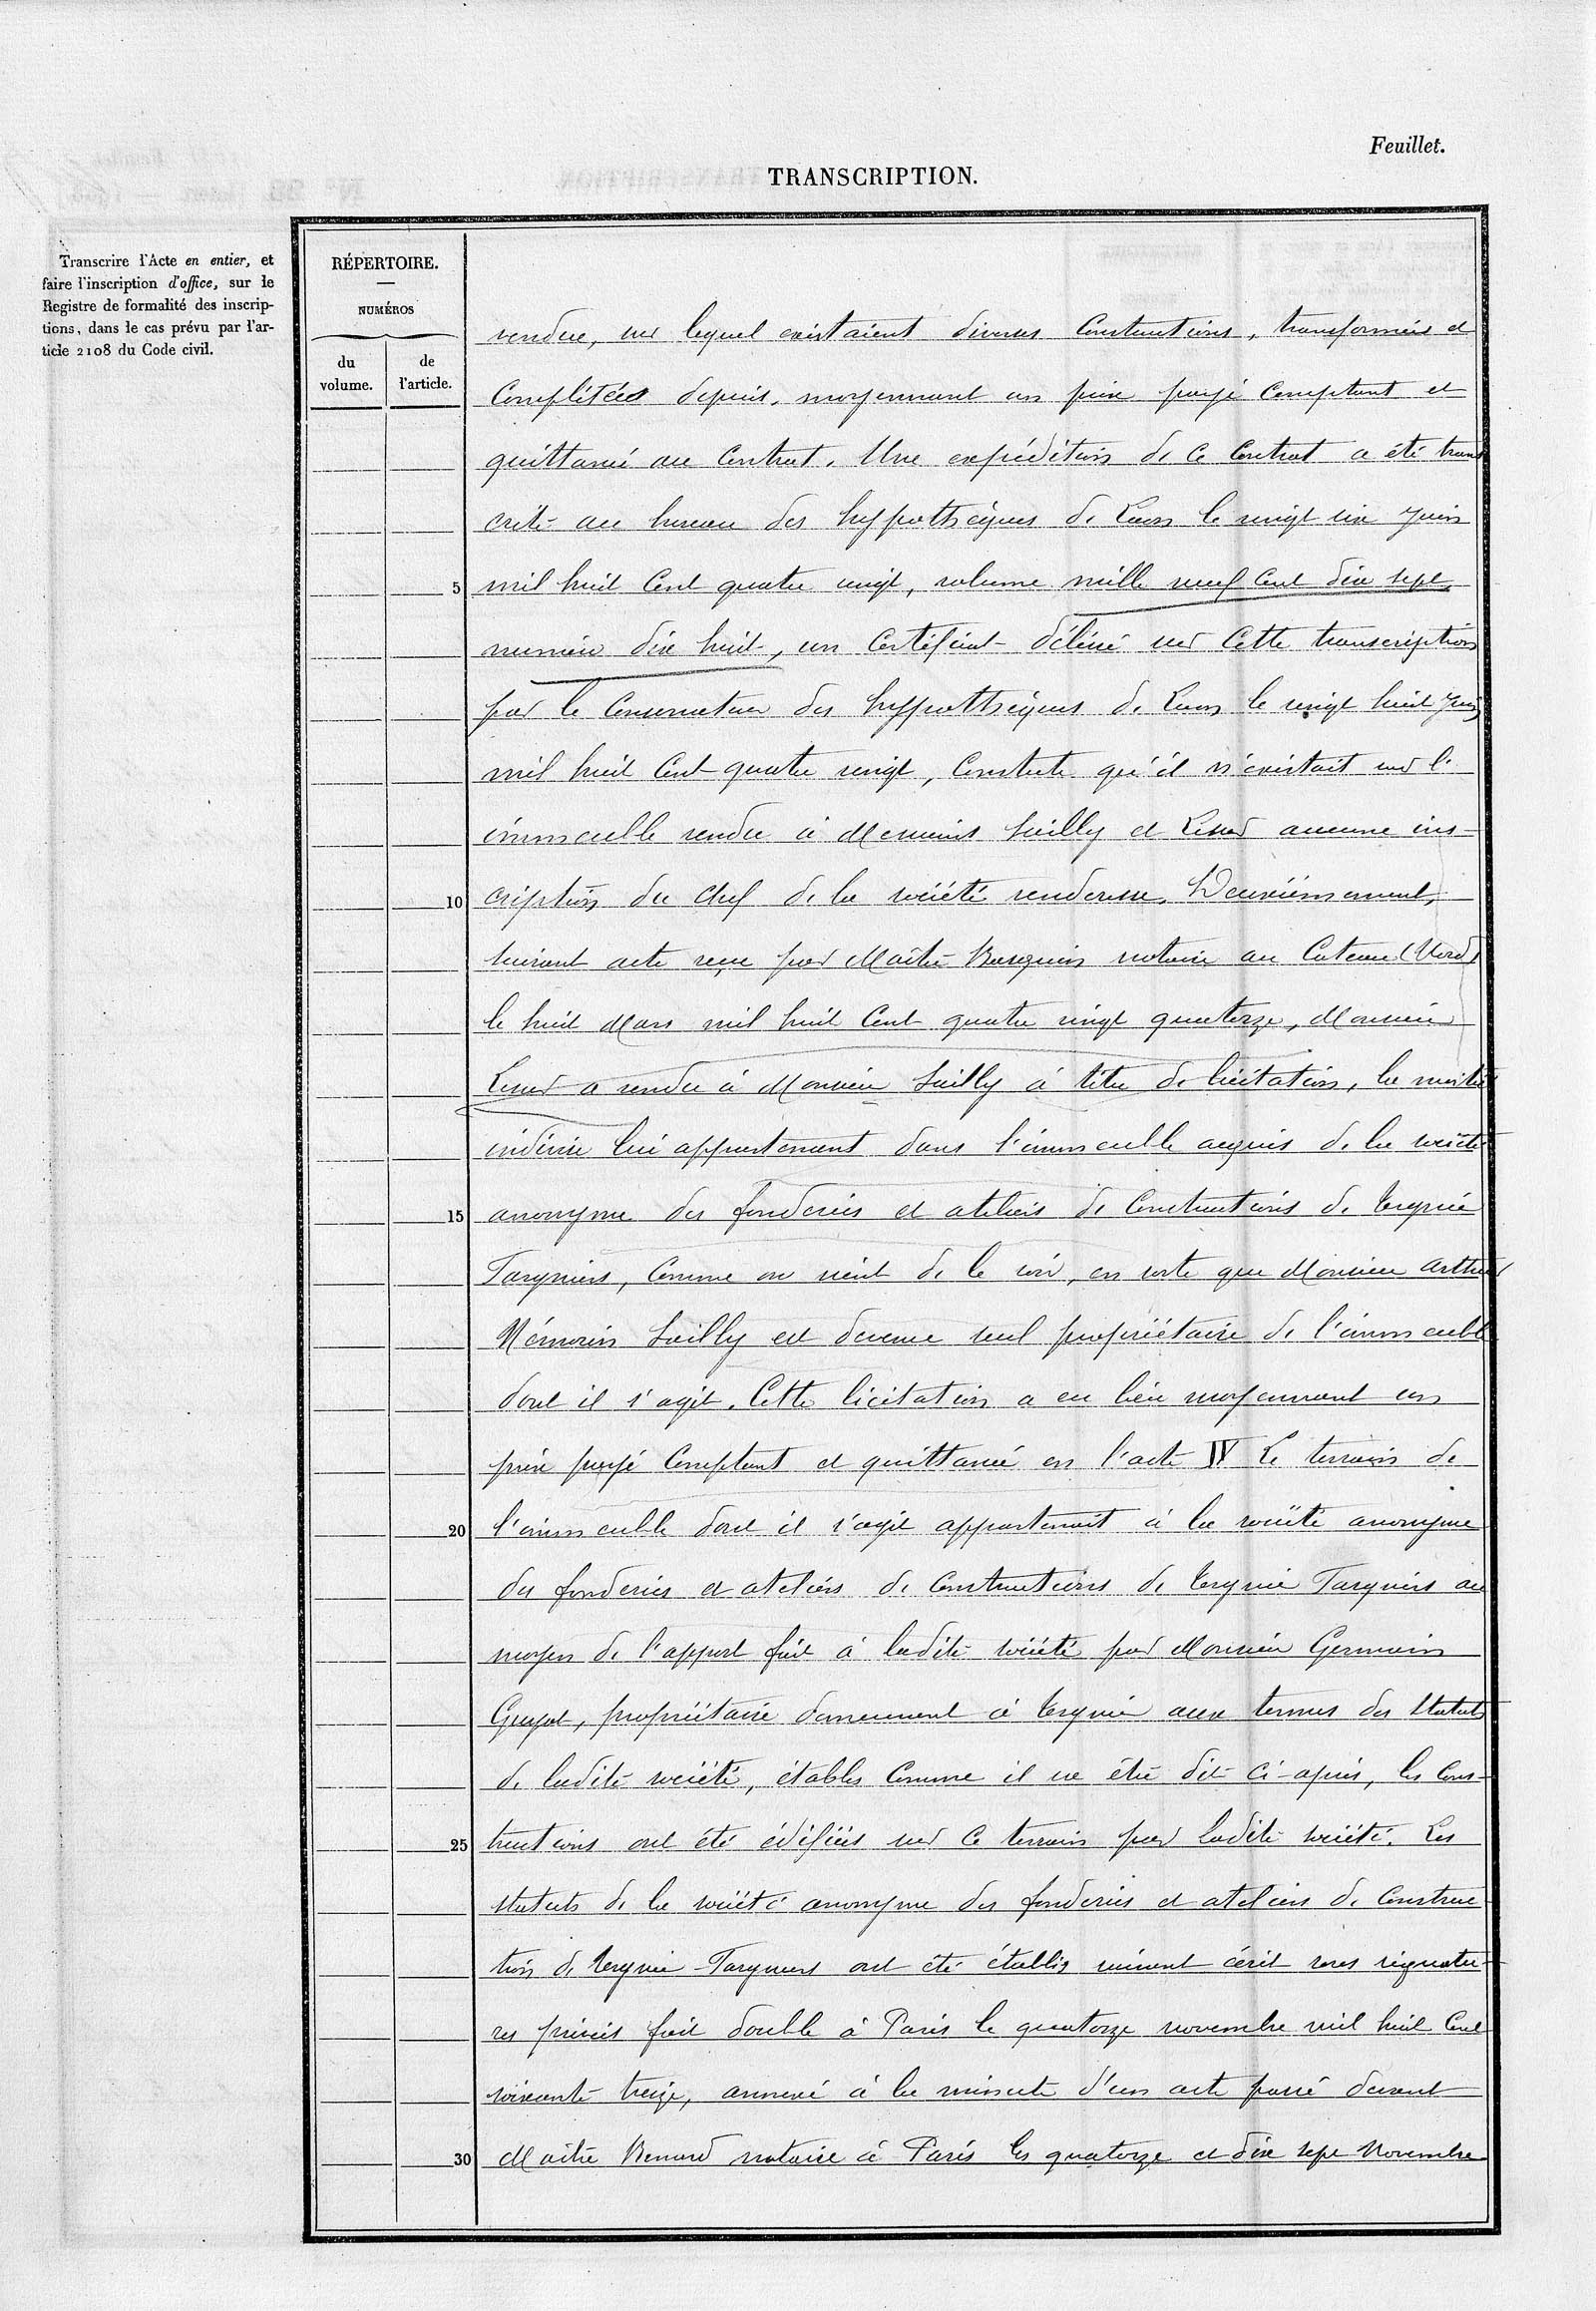 Feuillet.
TRANSCRIPTION.
Transcrire l'Acte en entier, et
faire l'inscription d'office, sur le
Registre de formalité des inscrip-
tions, dans le cas prévu par l'ar-
ticle 2108 du Code civil.
RÉPERTOIRE.
NUMÉROS
du
volume.
de
l'article.
vendue, sur lequel existaient diverses Constructions, transformées et
Complétées depuis, moyennant un prix payé Comptant et
quittancé au Contrat. Une expédition de ce Contrat a été trans
crite au bureau des hypothèques de Laon le vingt six Juin
5 mil huit Cent quatre vingt, volume mille neuf Cent dix sept,
numéro dix huit, un Certificat délivré sur Cette transcription
par le Conservateur des hypothèques de Laon le vingt huit Juin
mil huit Cent quatre vingt, Constate qu'il n'existait sur l'
immeuble vendu à Messieurs Suilly et aucune ins-
10 cription du Chef de la société venderesse. Deuxièmement,
suivant acte reçu par Maître notaire au Cateau (Nord)
le huit Mars mil huit Cent quatre vingt quatorze, Monsieur
a vendu à Monsieur Suilly à titre de licitation, la moitié
indivise lui appartenant dans l'immeuble acquis de la société
15 anonyme des fonderies et ateliers de Constructions de Tergnier
Fargniers, Comme on vient de le voir, en sorte que Monsieur Arthur
Némorin Suilly est devenu seul propriétaire de l'immeuble
dont il s'agit. Cette licitation a eu lieu moyennant un
prix payé Comptant et quittancé en l'acte IV Le terrain de
20 l'immeuble dont il s'agit appartenait à la société anonyme
des fonderies et ateliers de Constructions de Tergnier Fargniers au
moyen de l'apport fait à ladite société par Monsieur Germain
Guyot, propriétaire demeurant à Tergnier aux termes des Statuts
de ladite société, établis Comme il va être dit Ci-après, les Cons-
25 tructions ont été édifiées sur Ce terrain par ladite société. Les
statuts de la société anonyme des fonderies et ateliers de Construc
tion de Tergnier-Fargniers ont été établis suivant écrit sous signatu-
res privées fait double à Paris le quatorze novembre mil huit Cent
soixante treize, annexé à la minute d'un acte passé devant
30 Maître notaire à Paris les quatorze et dix sept Novembre